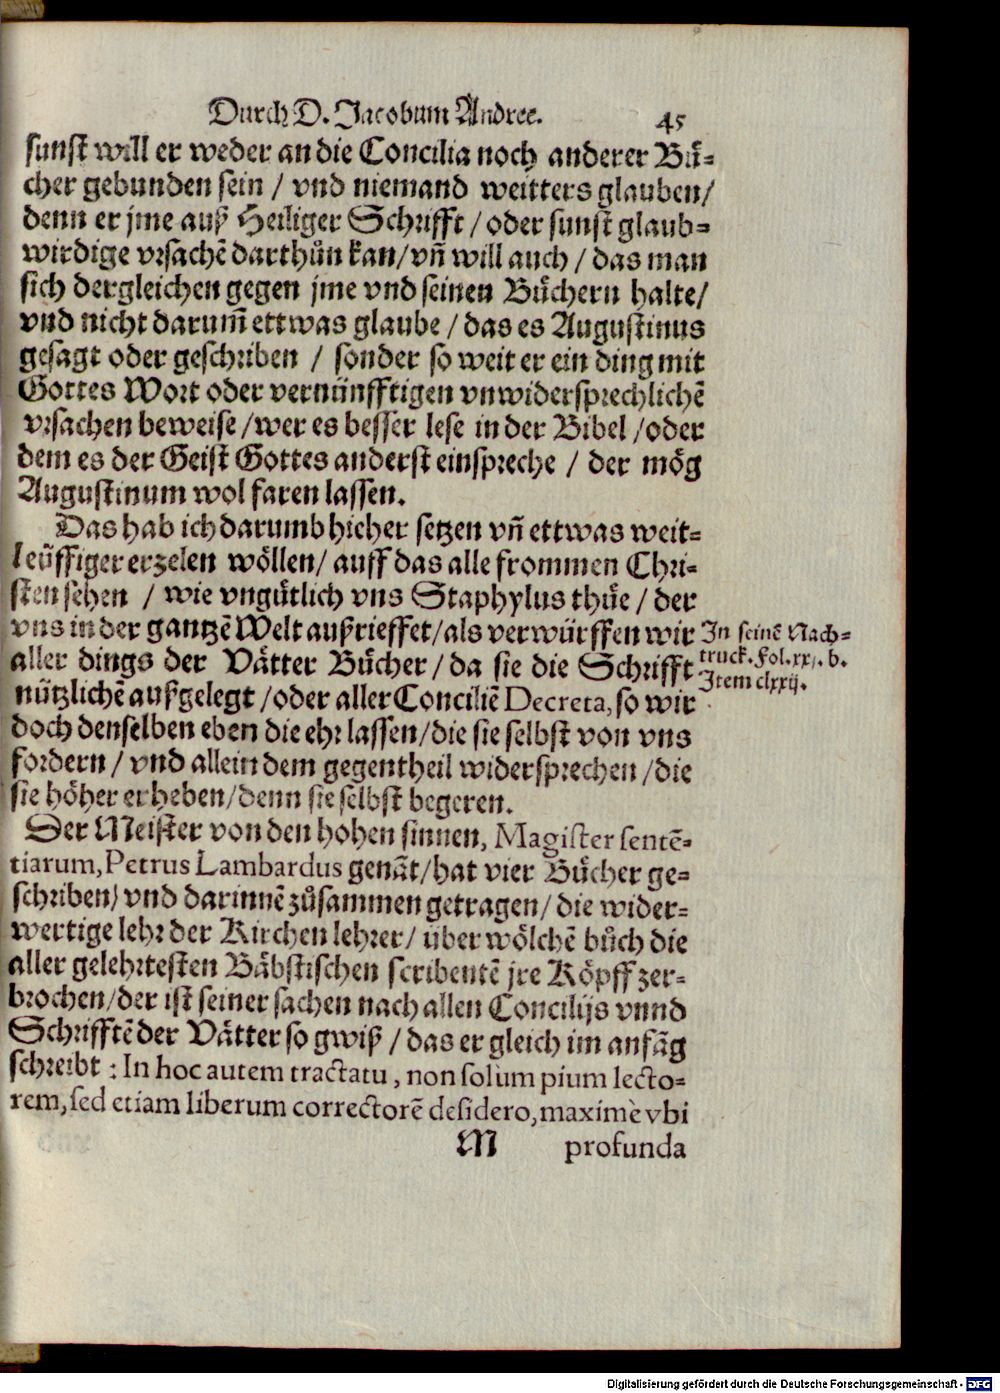 Durch D. Jacobum Andree. 45
sunst will er weder an die Concilia noch anderer Bů-
cher gebunden sein / vnd niemand weitters glauben/
denn er jme auß Heiliger Schrifft / oder sunst glaub-
wirdige vrsachē darthůn kan/vñ will auch / das man
sich dergleichen gegen jme vnd seinen Bůchern halte/
vnd nicht darum̃ ettwas glaube / das es Augustinus
gesagt oder geschriben / sonder so weit er ein ding mit
Gottes Wort oder vernünfftigen vnwidersprechlichē
vrsachen beweise /wer es besser lese in der Bibel /oder
dem es der Geist Gottes anderst einspreche / der mög
Augustinum wol faren lassen.
Das hab ich darumb hieher setzen vñ ettwas weit-
leüffiger erzelen wöllen/ auff das alle frommen Chri-
sten sehen / wie vngütlich vns Staphylus thůe / der
vns in der gantzē Welt außrieffet/als verwürffen wir
aller dings der Vätter Bůcher/da sie die Schrifft
nützlichē außgelegt /oder aller Conciliē Decreta, so wir
doch denselben eben die ehr lassen/die sie selbst von vns
fordern / vnd allein dem gegentheil widersprechen /die
sie höher erheben/denn sie selbst begeren.
In seinē Nach-
truck. Fol. xxj. b.
Item clxxij.
Der Meister von den hohen sinnen, Magister sentē-
tiarum, Petrus Lambardus genāt/hat vier Bůcher ge-
schriben/ vnd darinnē zůsammen getragen/ die wider-
wertige lehr der Kirchen lehrer/ über wölchē bůch die
aller gelehrtesten Bäbstischen scribentē jre Köpff zer-
brochen/der ist seiner sachen nach allen Concilijs vnnd
Schrifftē der Vätter so gwiß / das er gleich im anfāg
schreibt : In hoc autem tractatu, non solum pium lecto-
rem, sed etiam liberum correctorē desidero, maximè vbi
M profunda
Digitalisierung gefördert durch die Deutsche Forschungsgemeinschaft - DFG